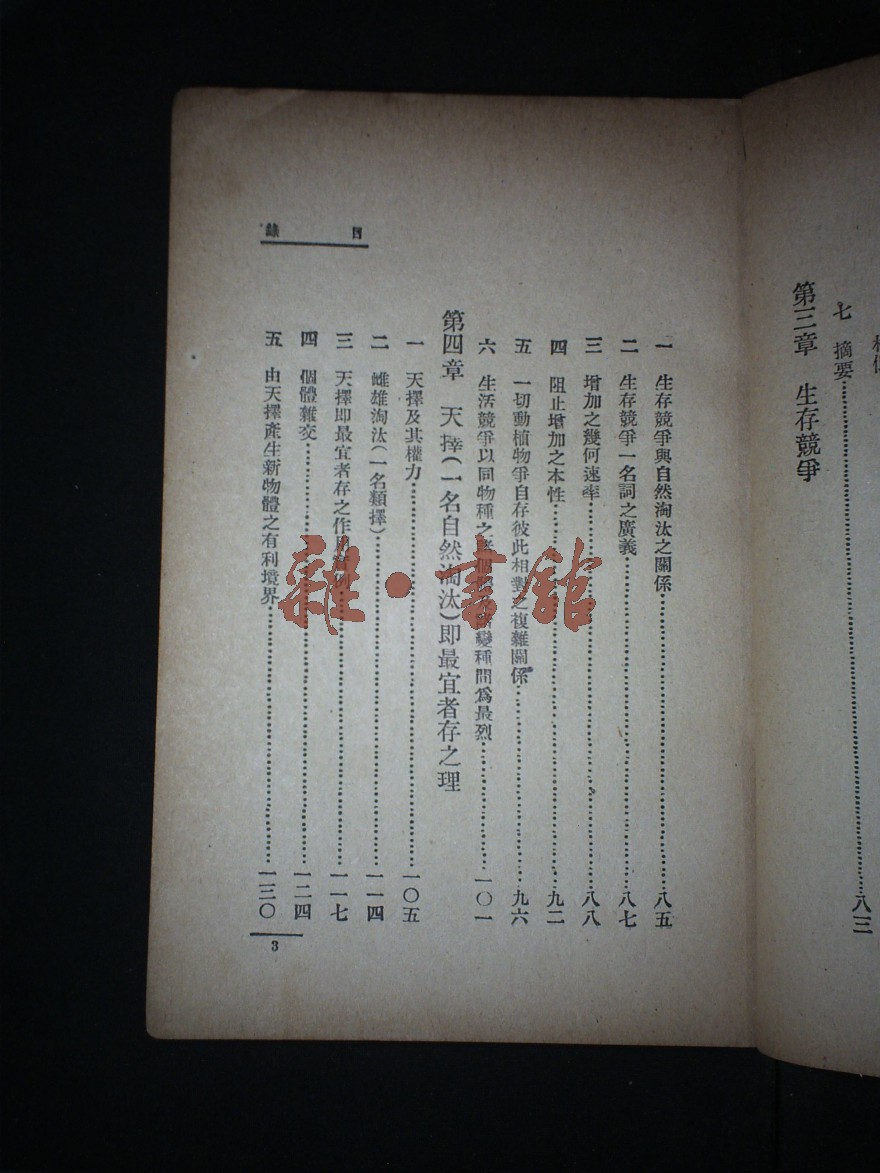 七　摘要……八三
第三章　生存競爭
一　生存競爭與自然淘汰之關係……八五
二　生存競爭一名詞之廣義……八七
三　增加之幾何速率……八八
四　阻止增加之本性……九二
五　一切動植物爭自存彼此相對之複雜關係……九六
六　生活競爭以同物種之個變種間爲最烈……一〇一
第四章　天擇(一名自然淘汰)即最宜者存之理
一　天擇及其權力……一〇五
二　雌雄淘汰(一名類擇)……一一四
三　天擇即最宜者存之作例……一一七
四　個體雜交……一二四
五　由天擇產生新物體之有利境界……一三〇
目錄
3
雜·書館